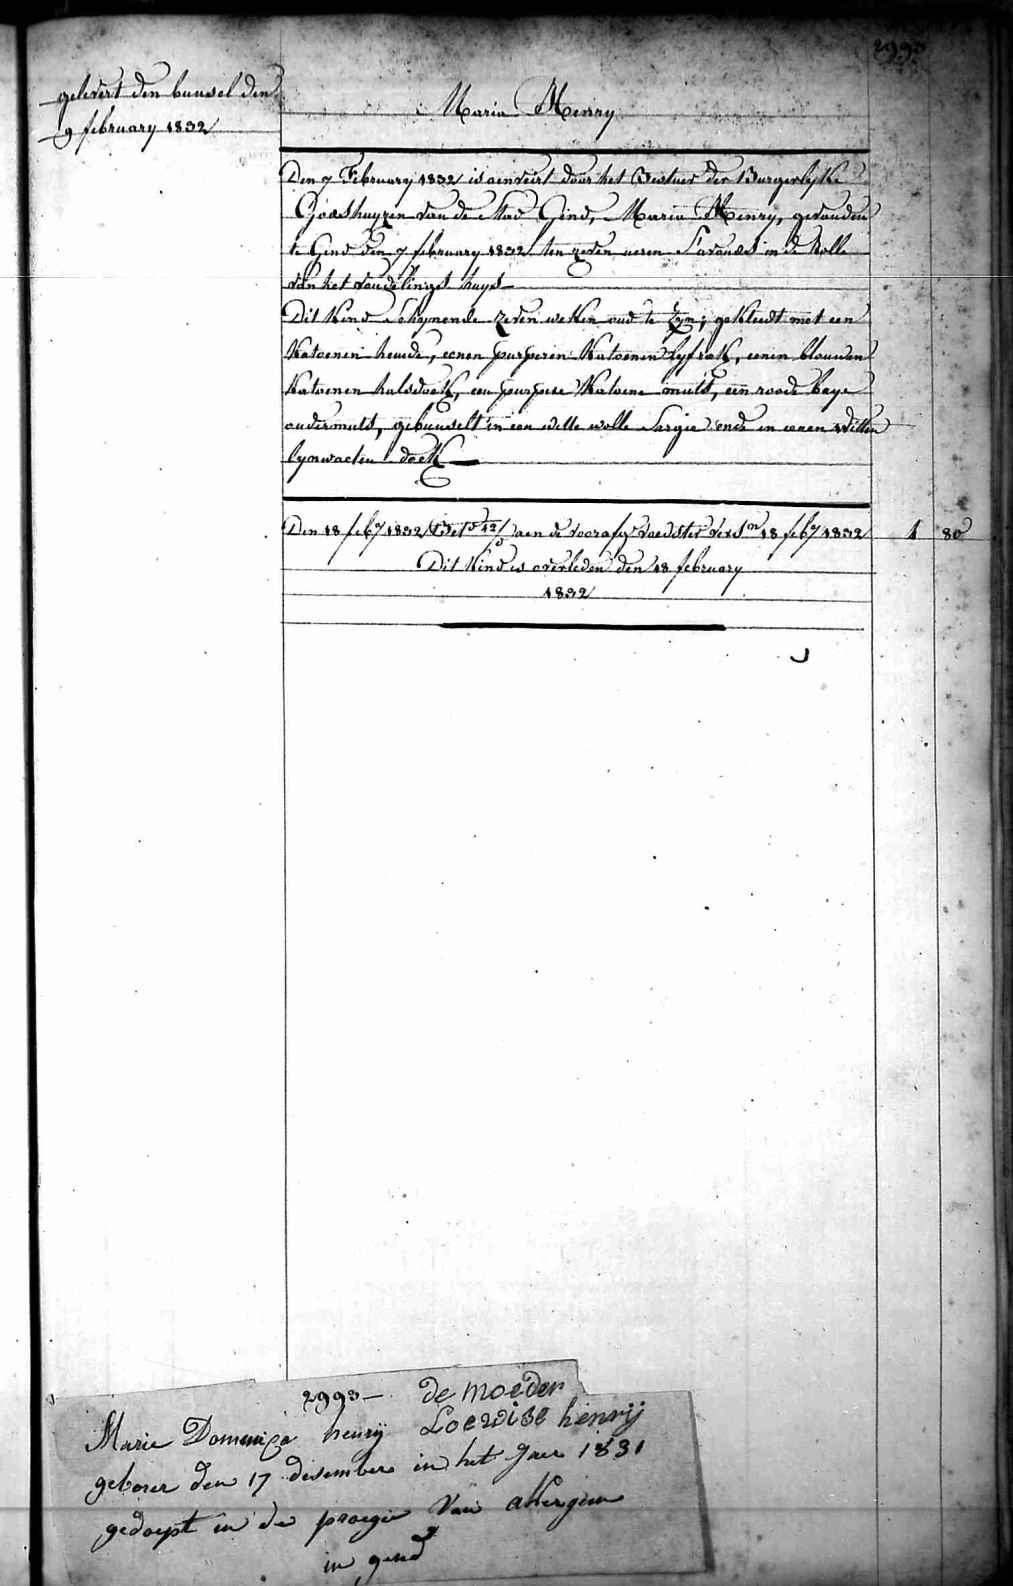 2993
gelevert den bunsel den
9 february 1832
Maria Henry
Den 7 February 1832 is aenveirt door het Bestuer der Burgerlyke
Godshuyzen van de Stad Gend, Maria Henry, gevonden
te Gend den 7 february 1832 ten zeven ueren s'avonds in de Rolle
van het vondelings huys
Dit Kind schynende zeven weken oud te zyn; gekleedt met een
Katoenen hemde, eenen purperen Katoenen lyfrok, eenen blauwen
Katoenen halsdoek, een purpere Katoene muts, een roode baye
ondermuts, gebunselt in een witte wolle Sargie ende in eenen witten
lynwaeten doek
Den 18 feby 1832 aen de voorafg voedster versn 18 feby 1832 1 80
Dit Kind is overleden den 18 february
1832
2993 - de moeder
Marie Domenica henrij Loewise henrij
geboren den 17 desember in het Jaer 1831
gedoept in de proegie Van akergem
in gend